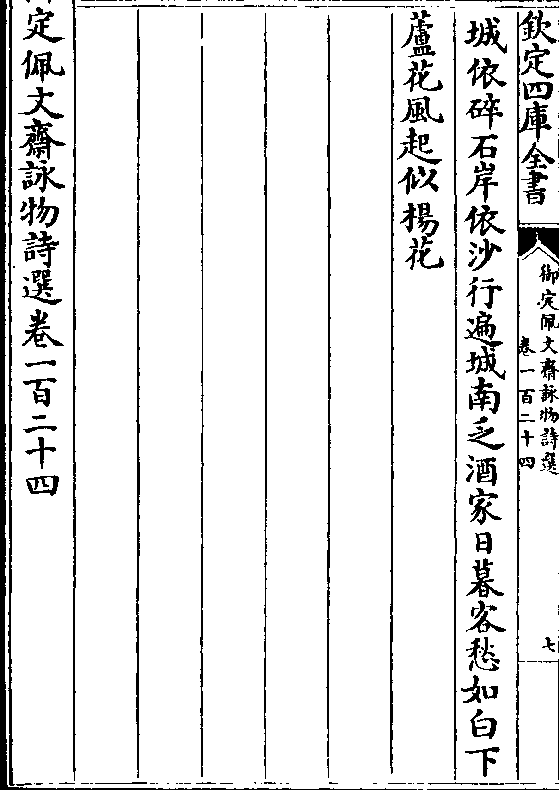 欽定四庫全書
御定佩文齋詠物詩選
卷一百二十四
七
城依碎石岸依沙行遍城南乏酒家日暮客愁如白下
蘆花風起似楊花
御定佩文齋詠物詩選卷一百二十四